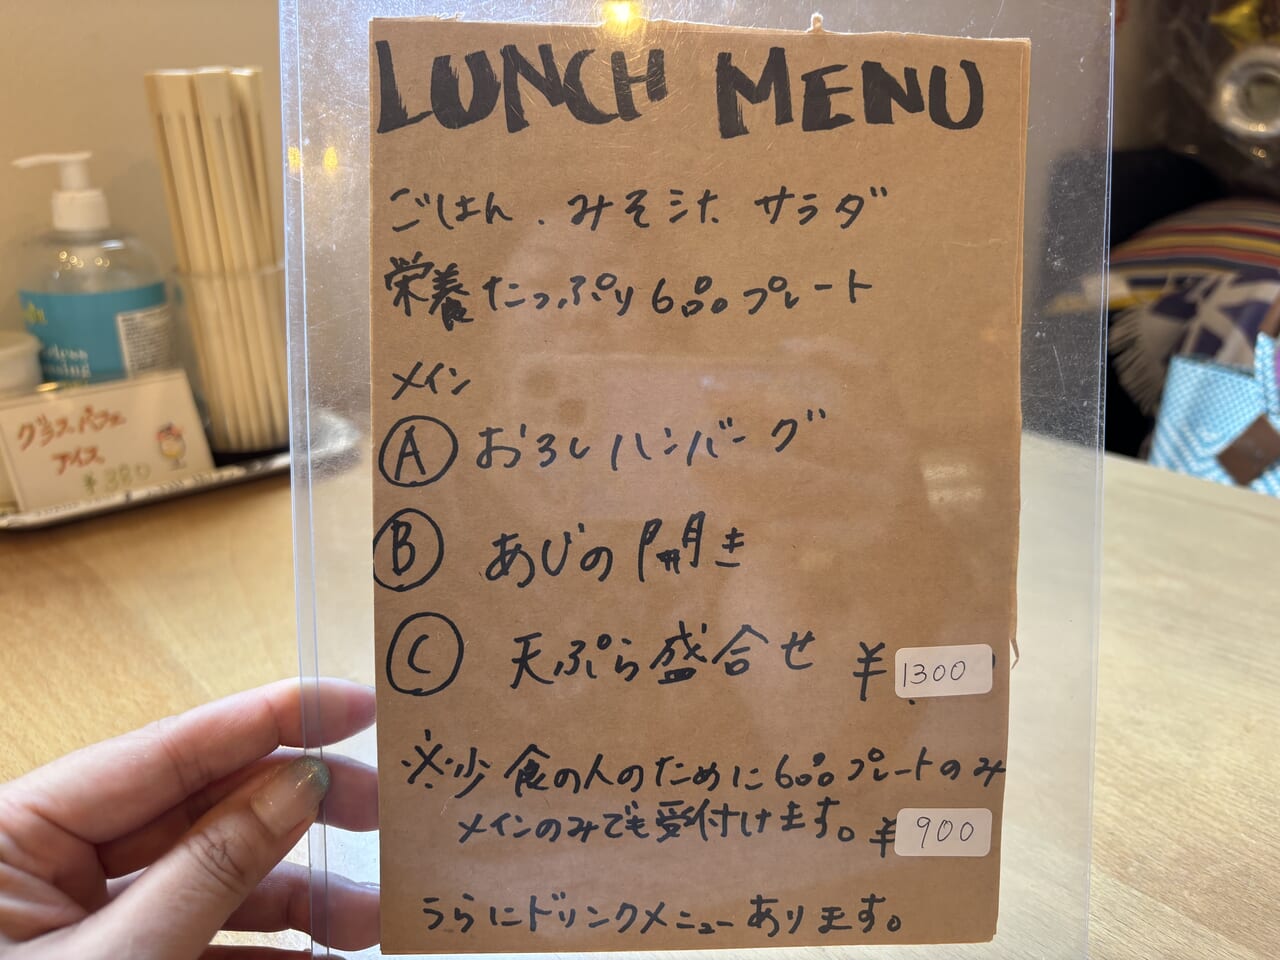 LUNCH MENU
ごはん．みそ汁 サラダ
栄養たっぷり6品プレート
メイン
Ⓐ おろしハンバーグ
Ⓑ あじの開き
Ⓒ 天ぷら盛合せ ¥1300
※少食の人のために6品プレートのみ
メインのみでも受付けます。¥900
うらにドリンクメニューあります。
グラスパフェ
アイス
¥380